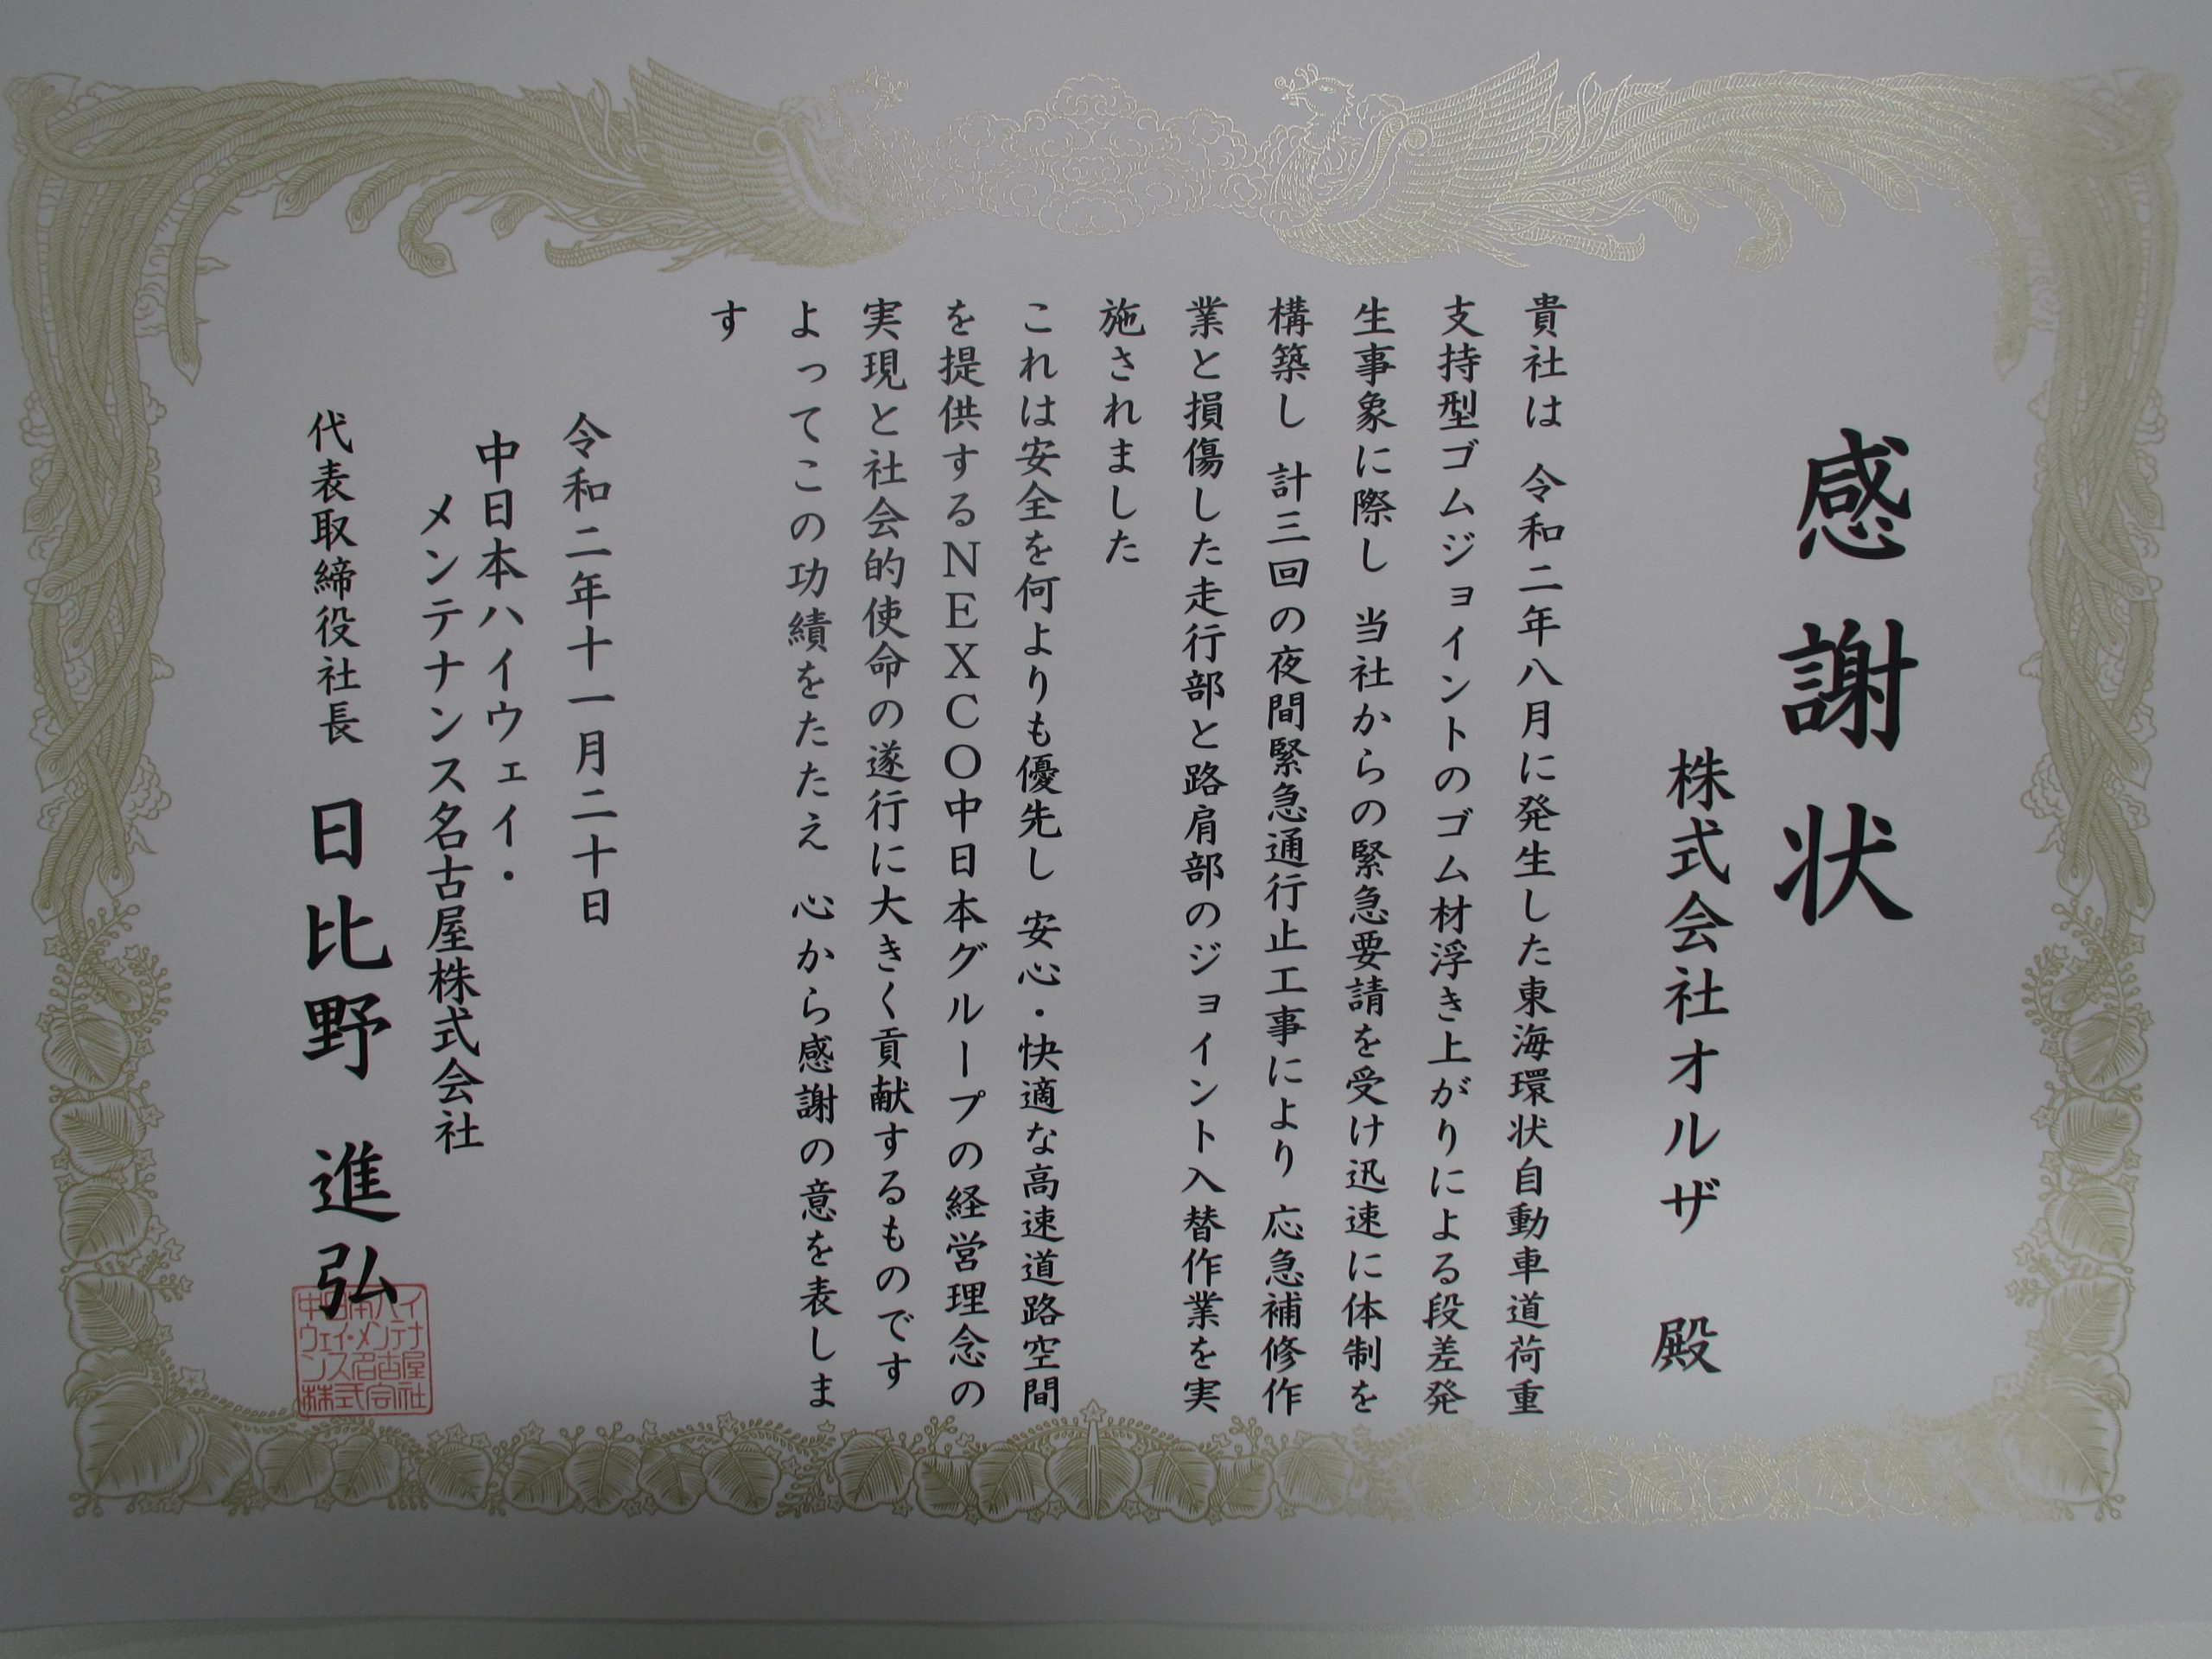 感謝状
株式会社オルザ　殿
貴社は　令和二年八月に発生した東海環状自動車道荷重
支持型ゴムジョイントのゴム材浮き上がりによる段差発
生事象に際し　当社からの緊急要請を受け迅速に体制を
構築し　計三回の夜間緊急通行止工事により　応急補修作
業と損傷した走行部と路肩部のジョイント入替作業を実
施されました
これは安全を何よりも優先し　安心・快適な高速道路空間
を提供するNEXCO中日本グループの経営理念の
実現と社会的使命の遂行に大きく貢献するものです
よってこの功績をたたえ　心から感謝の意を表しま
す
令和二年十一月二十日
中日本ハイウェイ・
メンテナンス名古屋株式会社
代表取締役社長　日比野　進弘
中日本ハイ
ウェイ・メンテナ
ンス名古屋
株式会社